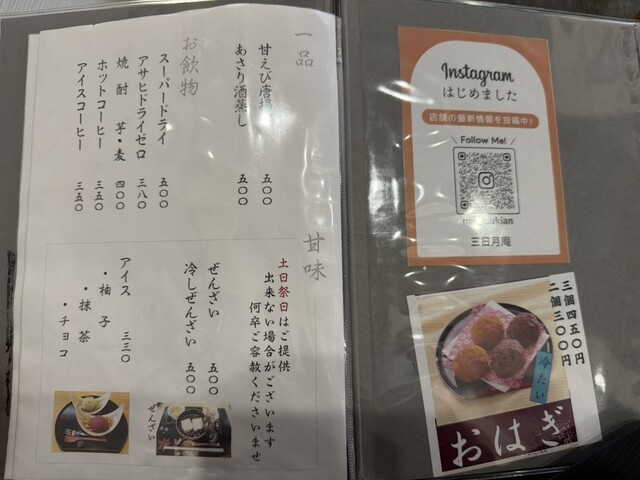 一品
甘えび唐揚 五〇〇
あさり酒蒸し 五〇〇
お飲物
スーパードライ 五〇〇
アサヒドライゼロ 三八〇
焼酎 芋・麦 四〇〇
ホットコーヒー 三五〇
アイスコーヒー 三五〇
甘味
土日祭日はご提供
出来ない場合がございます
何卒ご容赦くださいませ
ぜんざい 五〇〇
冷しぜんざい 五〇〇
アイス 三三〇
・柚子
・抹茶
・チョコ
ぜんざい
Instagram
はじめました
店舗の最新情報を投稿中!
\ Follow Me! /
三日月庵
三個四五〇円
二個三〇〇円
冷たい
おはぎ